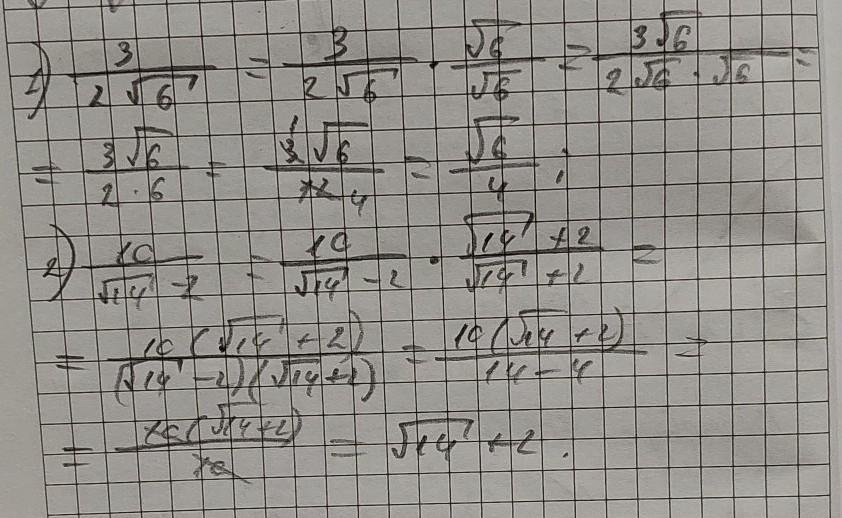 1) 3/(2√6) = 3/(2√6) · √6/√6 = 3√6/(2√6 · √6) =
= 3√6/(2 · 6) = 3√6/12 = √6/4 ;
2) 10/(√14 - 2) = 10/(√14 - 2) · (√14 + 2)/(√14 + 2) =
= 10(√14 + 2)/((√14 - 2)(√14 + 2)) = 10(√14 + 2)/(14 - 4) =
= 10(√14 + 2)/10 = √14 + 2 .